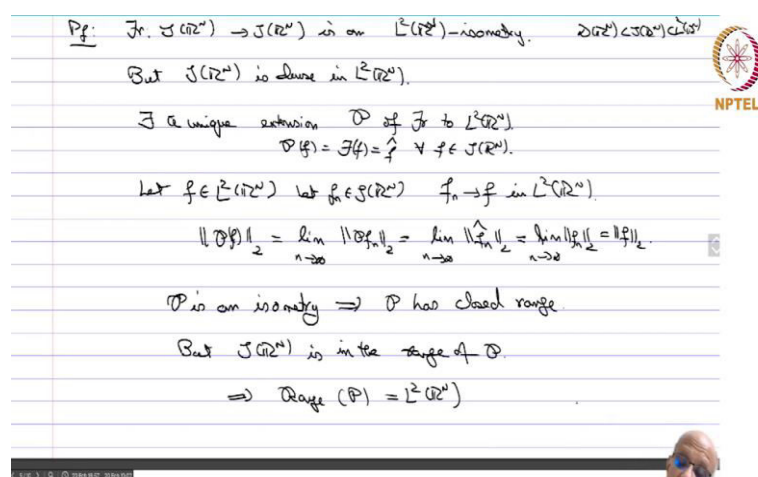 Pf: Fr. S(ℝᴺ) → S(ℝᴺ) is an L²(ℝᴺ)-isometry. D(ℝᴺ)⊂S(ℝᴺ)⊂L²(ℝᴺ)
But S(ℝᴺ) is dense in L²(ℝᴺ).
NPTEL
∃ a unique extension P of Fr to L²(ℝᴺ).
P(f) = F(f) = f̂ ∀ f ∈ S(ℝᴺ).
Let f ∈ L²(ℝᴺ) Let fₙ ∈ S(ℝᴺ) fₙ → f in L²(ℝᴺ)
‖Pf‖₂ = lim n→∞ ‖Pfₙ‖₂ = lim n→∞ ‖f̂ₙ‖₂ = lim n→∞ ‖fₙ‖₂ = ‖f‖₂.
P is an isometry ⟹ P has closed range.
But S(ℝᴺ) is in the range of P.
⟹ Range (P) = L²(ℝᴺ)